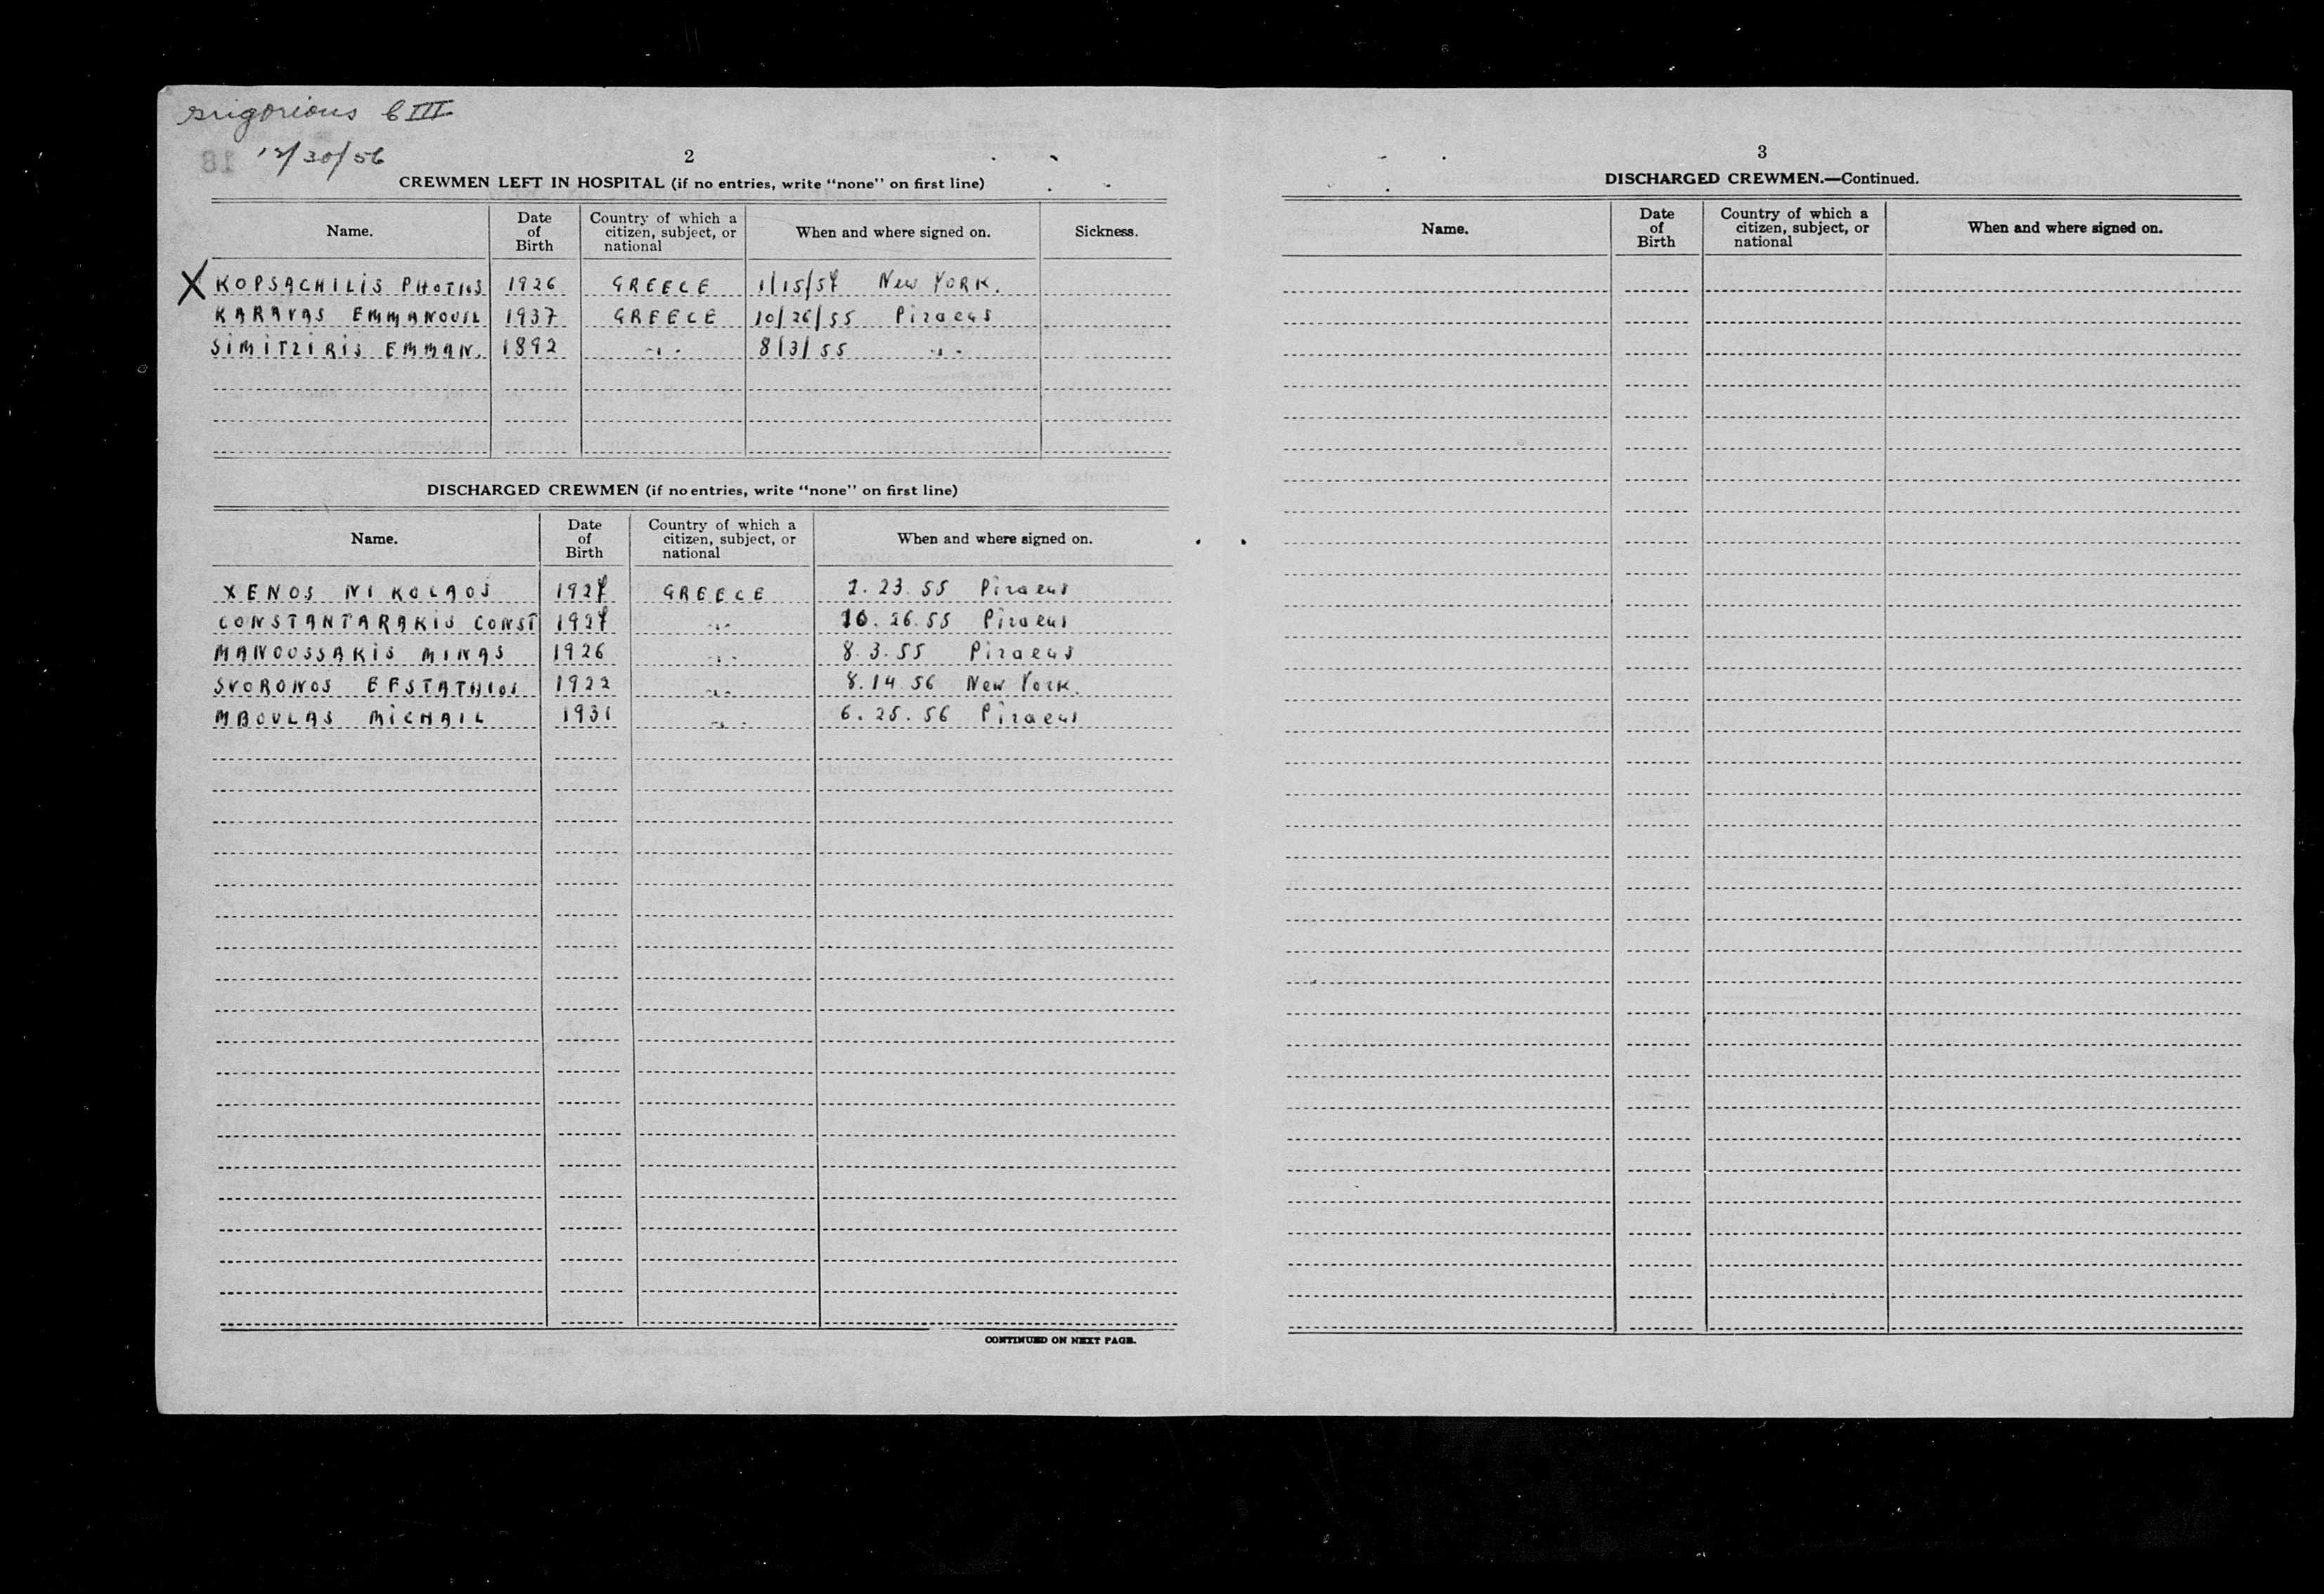 Grigorious C III
12/30/56
2
CREWMEN LEFT IN HOSPITAL (if no entries, write "none" on first line)
Name. Date of Birth Country of which a citizen, subject, or national When and where signed on. Sickness.
X KOPSACHILIS PHOTIOS 1926 GREECE 1/15/54 New YORK.
KARAVAS EMMANOUIL 1937 GREECE 10/26/55 Piraeus
SIMITZIRIS EMMAN. 1892 -"- 8/3/55 -"-
DISCHARGED CREWMEN (if no entries, write "none" on first line)
Name. Date of Birth Country of which a citizen, subject, or national When and where signed on.
XENOS NIKOLAOS 1927 GREECE 2.23.55 Piraeus
CONSTANTARAKIS CONST 1927 -"- 10.26.55 Piraeus
MANOUSSAKIS MINAS 1926 -"- 8.3.55 Piraeus
SVORONOS EFSTATHIOS 1922 -"- 8.14.56 New York.
MBOULAS MICHAIL 1931 -"- 6.25.56 Piraeus
CONTINUED ON NEXT PAGE.
3
DISCHARGED CREWMEN.—Continued.
Name. Date of Birth Country of which a citizen, subject, or national When and where signed on.